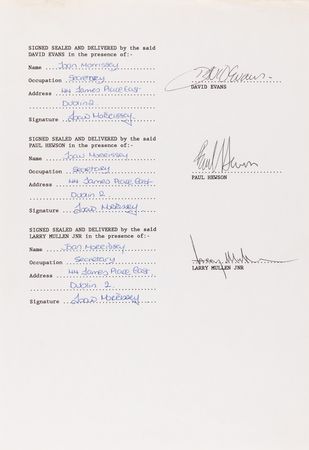 SIGNED SEALED AND DELIVERED by the said
DAVID EVANS in the presence of:-
Name Joan Morrissey
Occupation Secretary
Address 44 James Place East
Dublin 2
Signature Joan Morrissey
David Evans
DAVID EVANS
SIGNED SEALED AND DELIVERED by the said
PAUL HEWSON in the presence of:-
Name Joan Morrissey
Occupation Secretary
Address 44 James Place East
Dublin 2
Signature Joan Morrissey
Paul Hewson
PAUL HEWSON
SIGNED SEALED AND DELIVERED by the said
LARRY MULLEN JNR in the presence of:-
Name Joan Morrissey
Occupation Secretary
Address 44 James Place East
Dublin 2
Signature Joan Morrissey
Larry Mullen
LARRY MULLEN JNR